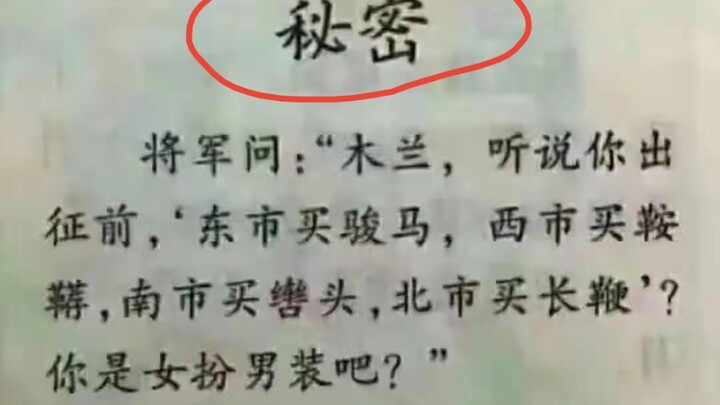 秘密
将军问：“木兰，听说你出
征前，‘东市买骏马，西市买鞍
鞯，南市买辔头，北市买长鞭’？
你是女扮男装吧？”